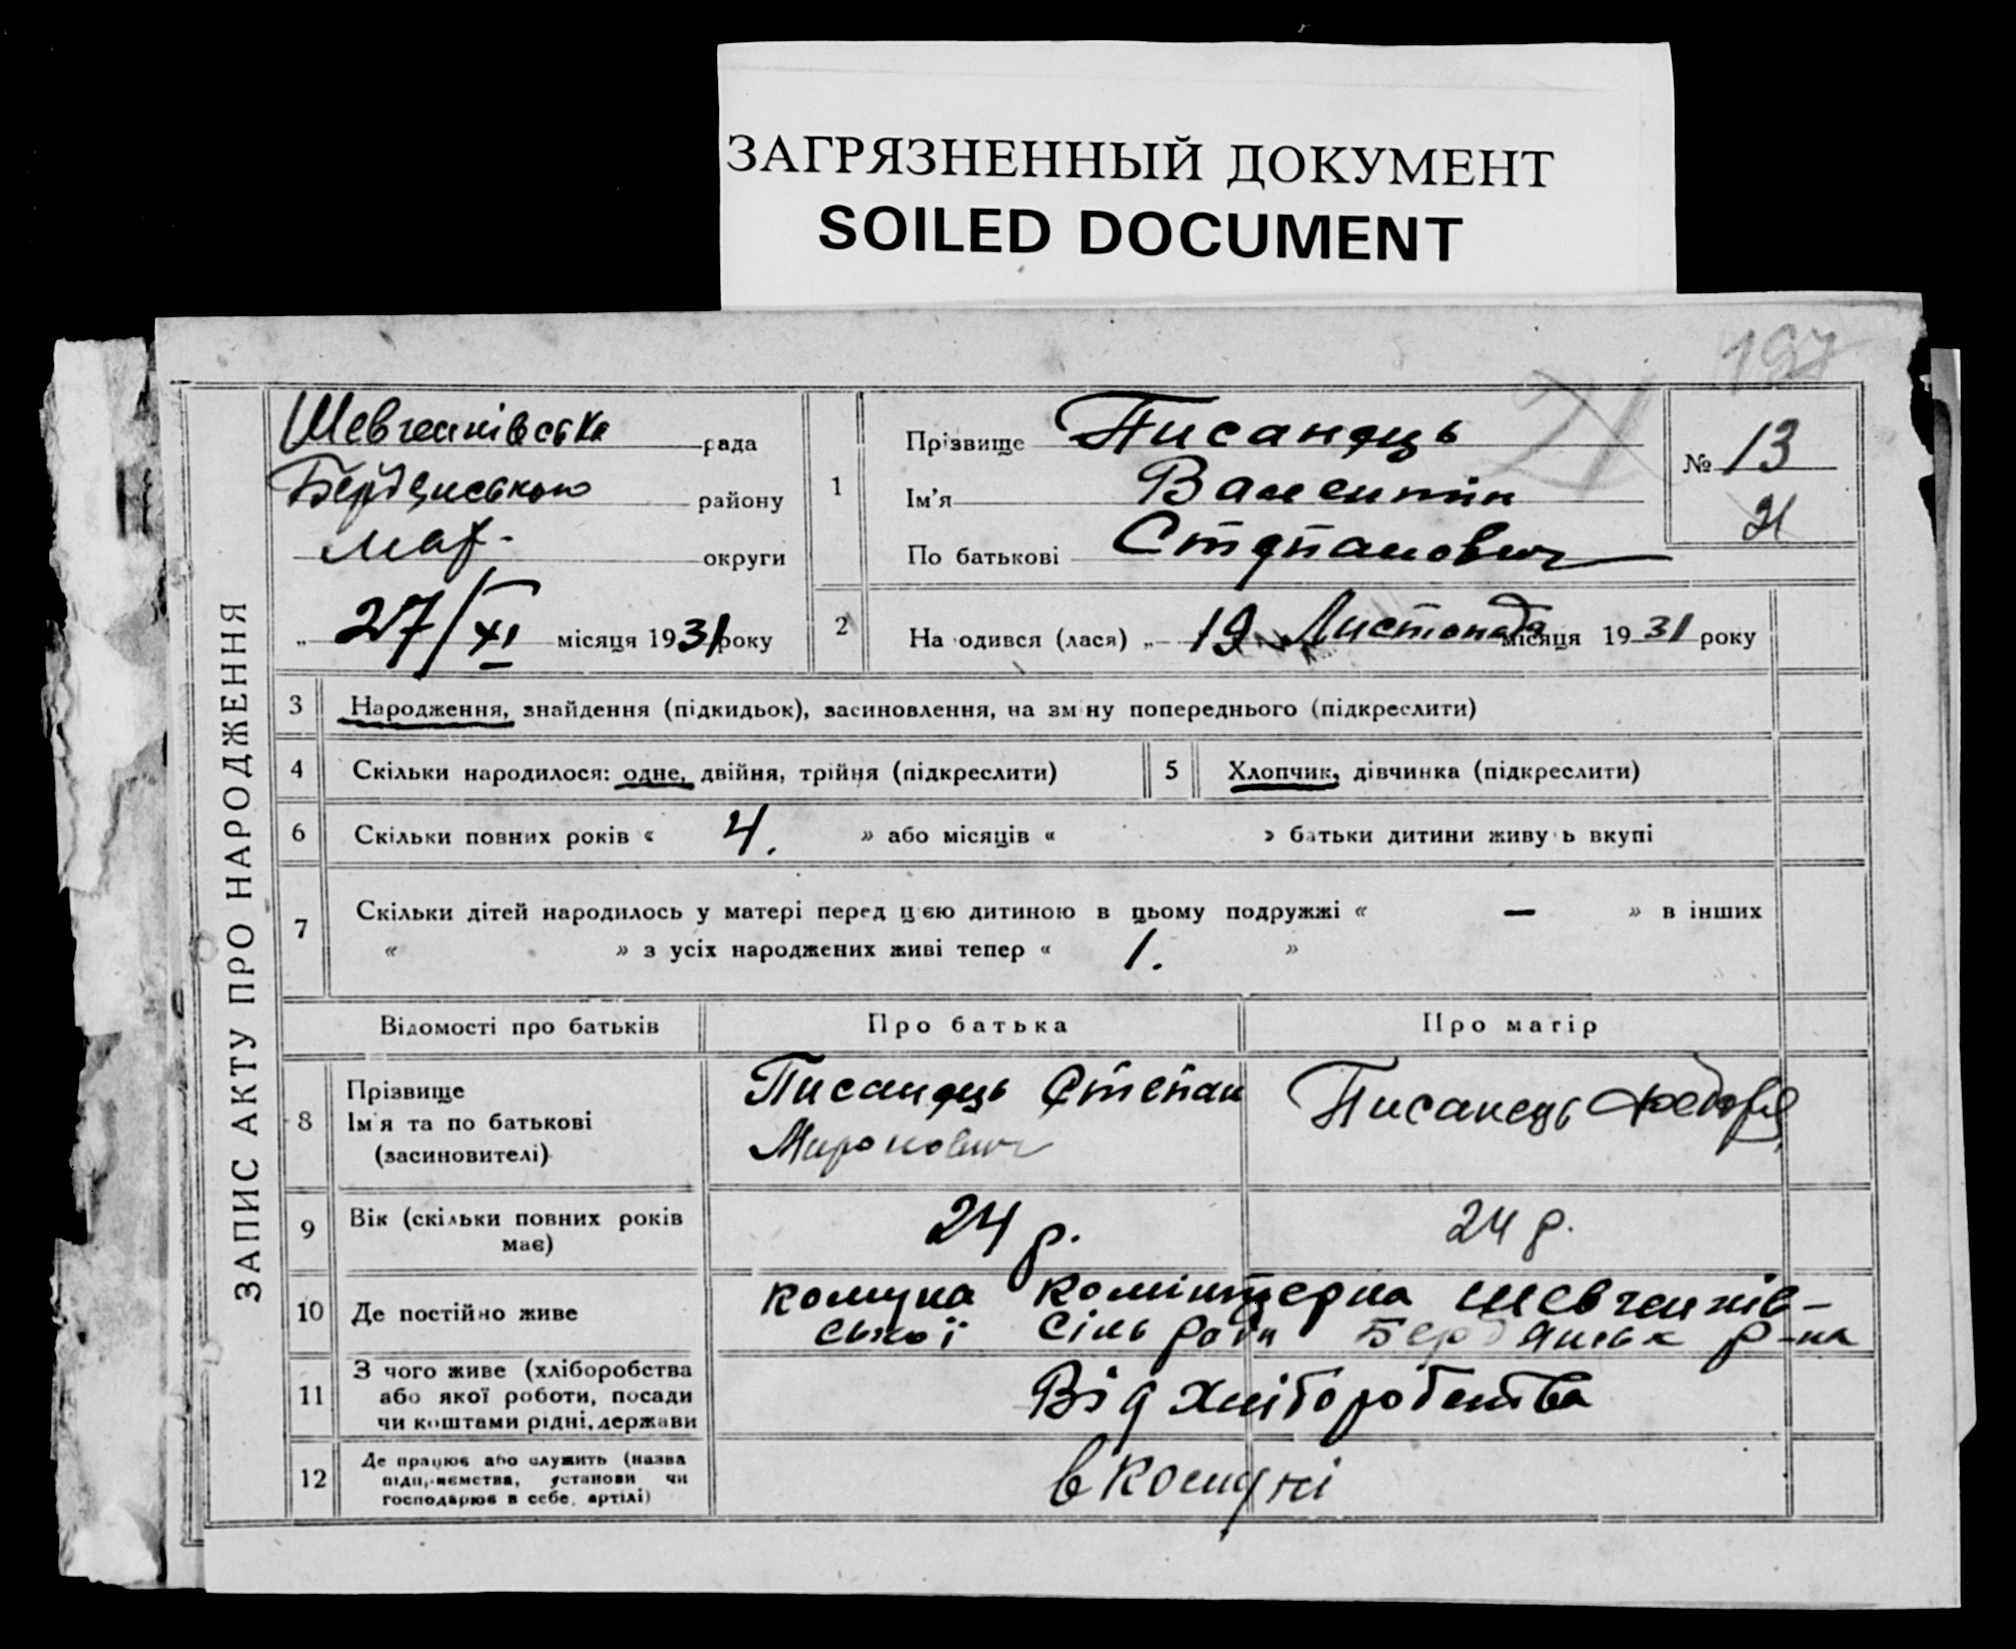 ЗАГРЯЗНЕННЫЙ ДОКУМЕНТ
SOILED DOCUMENT
197
ЗАПИС АКТУ ПРО НАРОДЖЕННЯ
Шевченківська рада
Бердянського району
Мар- округи
„ 27/XI місяця 1931 року
1
Прізвище Писанець
Ім'я Валентін
По батькові Степанович
№ 13
21
2 Народився (лася) „ 19 Листопада місяця 1931 року
3 Народження, знайдення (підкидьок), засиновлення, на зміну попереднього (підкреслити)
4 Скільки народилося: одне, двійня, трійня (підкреслити)
5 Хлопчик, дівчинка (підкреслити)
6 Скільки повних років « 4. » або місяців « » батьки дитини живуть вкупі
7 Скільки дітей народилось у матері перед цією дитиною в цьому подружжі « — » в інших
« » з усіх народжених живі тепер « 1. »
Відомості про батьків Про батька Про матір
8 Прізвище
Ім'я та по батькові
(засиновителі)
Писанець Степан
Миронович
Писанець
9 Вік (скільки повних років
має)
24 р. 24 р.
10 Де постійно живе
комуна Комінтерна Шевченків-
ської сільради Бердянськ р-на
11 З чого живе (хліборобства
або якої роботи, посади
чи коштами рідні, держави
Від хліборобства
12 Де працює або служить (назва
підприємства, установи чи
господарює в себе, артілі)
в комуні